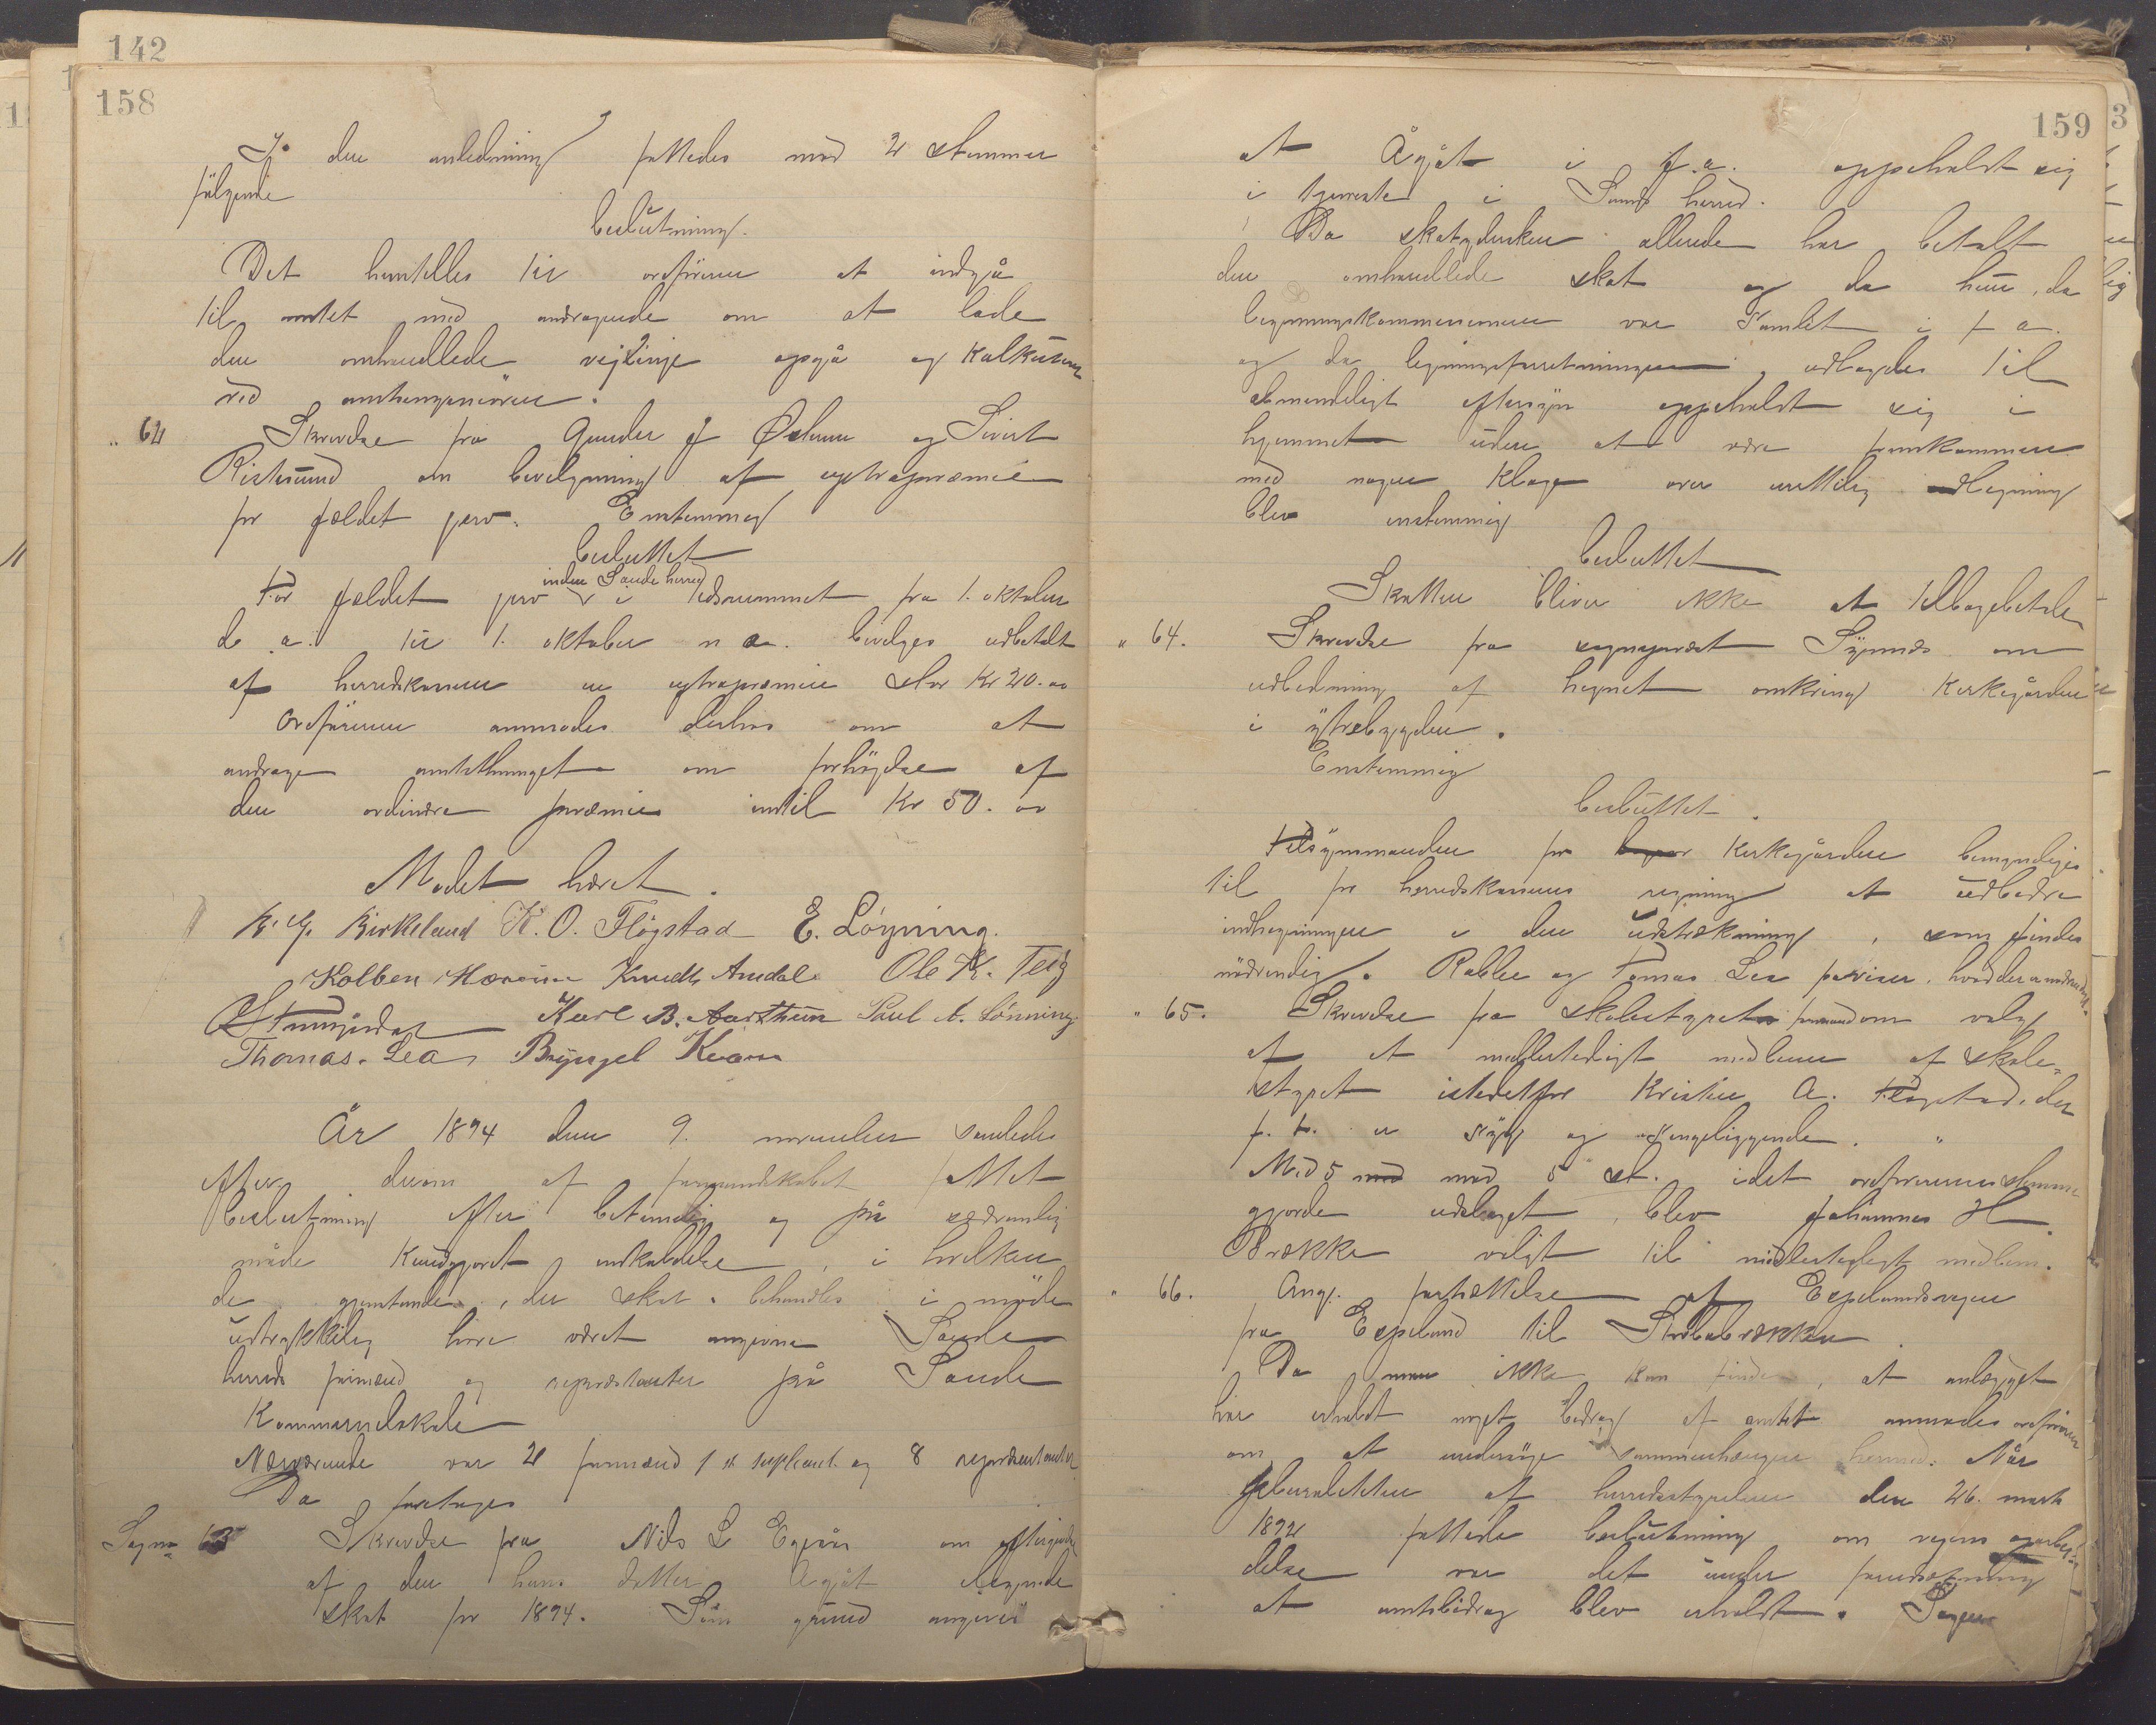 142
158
I den anledning fattedes med 21 stemmer
følgende
beslutning.
Det henstilles til ordføreren at indgå
til amtet med andragende om at lade
den omhandlede vejlinje opgå og kalkulere
ved amtsingeniøren.
" 62 Skrivelse fra Gunder J Østum og Sivert
Risteund om bevilgning af extrapræmie
for fældet jerv. Enstemmig
besluttet
For fældet jerv inden Saude herred i tidsrummet fra 1. oktober
d. a. til 1. oktober n a. bevilges udbetalt
af herredskassen en extrapræmie stor Kr 20.00
Ordføreren anmodes derhos om at
andrage amtsthinget om forhøjelse af
den ordinære præmie indtil Kr 50.00
Mødet hævet.
Birkeland K. O. Fløgstad E. Løyning.
Kolben Knudt Amdal Ole K. Teig
Karl B. Aarthun Paul A. Lønning
Thomas. Lea, Bryngel Kvam
År 1894 den 9. november samledes
efter derom af formandskabet fattet
beslutning efter betimelig og på sædvanlig
måde kundgjort indkaldelse, i hvilken
de gjenstande, der skal behandles i møde
udtrykkelig have været angivne Saude
herreds formænd og repræsentanter på Saude
Kommunelokale
Nærværende var 4 formænd 1 ste suppleant. og 8 repræsentanter
Da foretoges
Sag no 63 Skrivelse fra Nils L om eftergivelse
af den hans datter Agåt ilignede
skat for 1894. Som grund angives
159
at Ågåt i f. a. oppeholdt sig
i tjeneste i Sunds herred.
Da skatyderken allerede har betalt
den omhandlede skat og da hun, da
ligningskommissionen var samlet i f a.
og da ligningsforretningen udlagdes til
almindeligt eftersyn oppeholdt sig i
hjemmet uden at være fremkommen
med nogen klage over urettelig udligning
blev enstemmig
besluttet
Skatten bliver ikke at tilbagebetale
" 64. Skrivelse fra sogneprest Synnes om
udbedring af hegnet omkring Kirkegården
i ytrebygden.
Enstemmig
besluttet.
Tilsynsmanden for Kirkegården bemyndiges
til for herredskassens regning at udbedre
indhegningen i den udstrækning, som findes
nødvendig. Rabbe og Tomas Lea påviser, hvad der er nødvendigt.
" 65. Skrivelse fra skolestyrets formand om valg
af et midlertidigt medlem af skole-
styret istedetfor Kristen A. Fløgstad, der
f. t. er syg og sengeliggende.
Med 5 med mod 5 st. idet ordførerens stemme
gjorde udslaget, blev Johannes H
Brække valgt til midlertidigt medlem.
" 66. Ang. fortsættelse af Espelandsvegen
fra Espeland til Skrobabrækken
Da man ikke kan finde, at anlægget
har erholdt noget bidrag af amtet anmodes ordføreren
om at undersøge sammenhængen hermed. Når
flerheden af herredsstyrelsen den 26. mars
1892 fattede beslutning om vegens oparbei-
delse var det under forudsætning
at amtsbidrag blev erholdt. Sagen